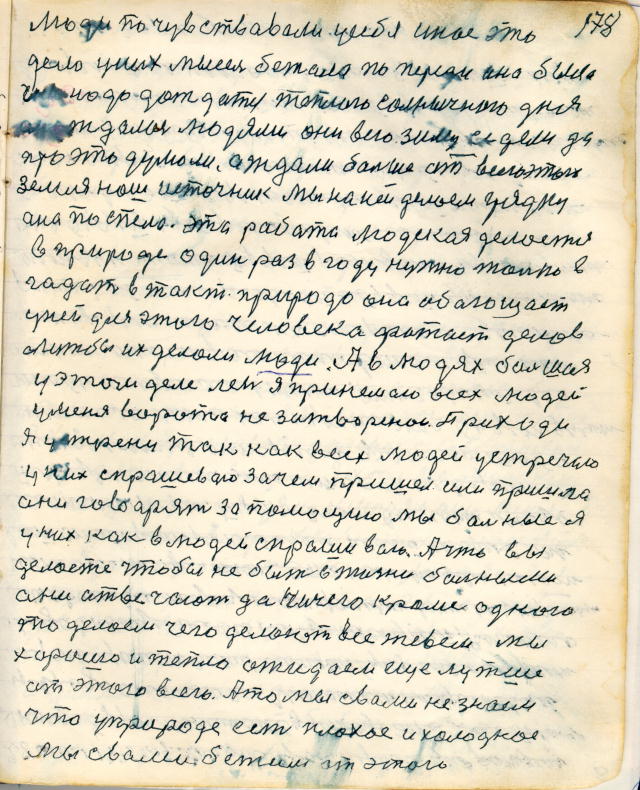 178
люди почувствавали усебя иное это
дело уних мысля бежала по переди она была
надо дождату теплого солнычного дня
ждалыя людями они всю зиму сидели да
про это думоли. аждали больше от всегоэтых
Земля наш источник мы на ней делаем грядку
ана поспела. Эта работа людская делоется
в природе один раз в году нужно толко в
гадат в такт. природо она обагощает
уней для этого человека фатает делов
лиштбы их делоли люди. А в людях болшая
у этом деле лен я принемаю всех людей
уменя ворота не затворенои. Приходи
я устрену так как всех людей устречаю
у них спрашеваю зачем пришел или пришла
они говорят за помощию мы болные я
уних как в людей спрашиваю. А что вы
делаете чтобы не быт в жизни болными
они атвечают да ничего кроме одного
то делоем чего делают все живем мы
хорошо и тепло ожидаем еще лутше
от этого всего. Ато мы свами не знаем
что уприроде ест плохое и холодное
мы свами бежим от этого